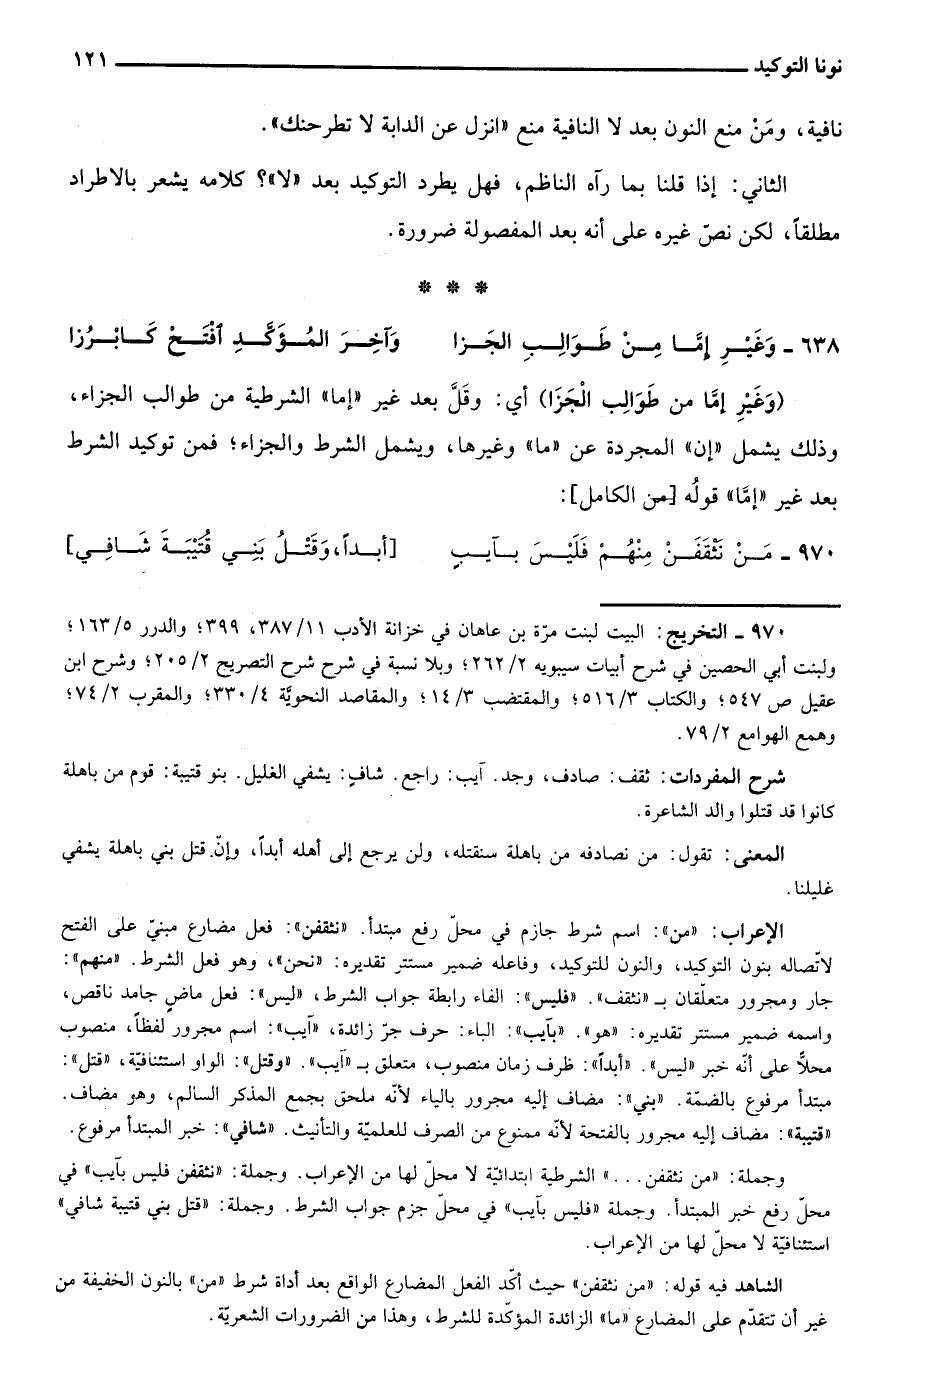 نونا التوكيد ١٢١
نافية، ومَنْ منع النون بعد لا النافية منع «انزل عن الدابة لا تطرحنك».
الثاني: إذا قلنا بما رآه الناظم، فهل يطرد التوكيد بعد «لا»؟ كلامه يشعر بالاطراد
مطلقاً، لكن نصّ غيره على أنه بعد المفصولة ضرورة.
* * *
٦٣٨ ـ وَغَيْرِ إِمَّا مِنْ طَوَالِبِ الجَزا وَآخِرَ المُؤَكَّدِ افْتَحْ كَابْرُزا
(وَغَيْرِ إِمَّا من طَوَالِبِ الْجَزَا) أي: وقَلَّ بعد غير «إما» الشرطية من طوالب الجزاء،
وذلك يشمل «إن» المجردة عن «ما» وغيرها، ويشمل الشرط والجزاء؛ فمن توكيد الشرط
بعد غير «إمَّا» قولُه [من الكامل]:
٩٧٠ ـ مَنْ نَثْقَفَنْ مِنْهُمْ فَلَيْسَ بآيبٍ [أبداً، وَقَتْلُ بَنِي قُتَيْبَةَ شَافِي]
٩٧٠ ـ التخريج: البيت لبنت مرّة بن عاهان في خزانة الأدب ١١/ ٣٨٧، ٣٩٩؛ والدرر ٥/ ١٦٣؛
ولبنت أبي الحصين في شرح أبيات سيبويه ٢/ ٢٦٢؛ وبلا نسبة في شرح شرح التصريح ٢/ ٢٠٥؛ وشرح ابن
عقيل ص ٥٤٧؛ والكتاب ٣/ ٥١٦؛ والمقتضب ٣/ ١٤؛ والمقاصد النحويَّة ٤/ ٣٣٠؛ والمقرب ٢/ ٧٤؛
وهمع الهوامع ٢/ ٧٩.
شرح المفردات: ثقف: صادف، وجد. آيب: راجع. شافٍ: يشفي الغليل. بنو قتيبة: قوم من باهلة
كانوا قد قتلوا والد الشاعرة.
المعنى: تقول: من نصادفه من باهلة سنقتله، ولن يرجع إلى أهله أبداً، وإنّ قتل بني باهلة يشفي
غليلنا.
الإعراب: «من»: اسم شرط جازم في محلّ رفع مبتدأ. «نثقفن»: فعل مضارع مبنيّ على الفتح
لاتّصاله بنون التوكيد، والنون للتوكيد، وفاعله ضمير مستتر تقديره: «نحن»، وهو فعل الشرط. «منهم»:
جار ومجرور متعلّقان بـ «نثقف». «فليس»: الفاء رابطة جواب الشرط، «ليس»: فعل ماضٍ جامد ناقص،
واسمه ضمير مستتر تقديره: «هو». «بآيب»: الباء: حرف جرّ زائدة، «آيب»: اسم مجرور لفظاً، منصوب
محلاً على أنّه خبر «ليس». «أبداً»: ظرف زمان منصوب، متعلق بـ «آيب». «وقتل»: الواو استئنافيّة، «قتل»:
مبتدأ مرفوع بالضمّة. «بني»: مضاف إليه مجرور بالياء لأنّه ملحق بجمع المذكر السالم، وهو مضاف.
«قتيبة»: مضاف إليه مجرور بالفتحة لأنّه ممنوع من الصرف للعلميّة والتأنيث. «شافي»: خبر المبتدأ مرفوع.
وجملة: «من نثقفن...» الشرطية ابتدائيّة لا محلّ لها من الإعراب. وجملة: «نثقفن فليس بآيب» في
محلّ رفع خبر المبتدأ. وجملة «فليس بآيب» في محلّ جزم جواب الشرط. وجملة: «قتل بني قتيبة شافي»
استئنافيّة لا محلّ لها من الإعراب.
الشاهد فيه قوله: «من نثقفن» حيث أكّد الفعل المضارع الواقع بعد أداة شرط «من» بالنون الخفيفة من
غير أن تتقدّم على المضارع «ما» الزائدة المؤكّدة للشرط، وهذا من الضرورات الشعريّة.